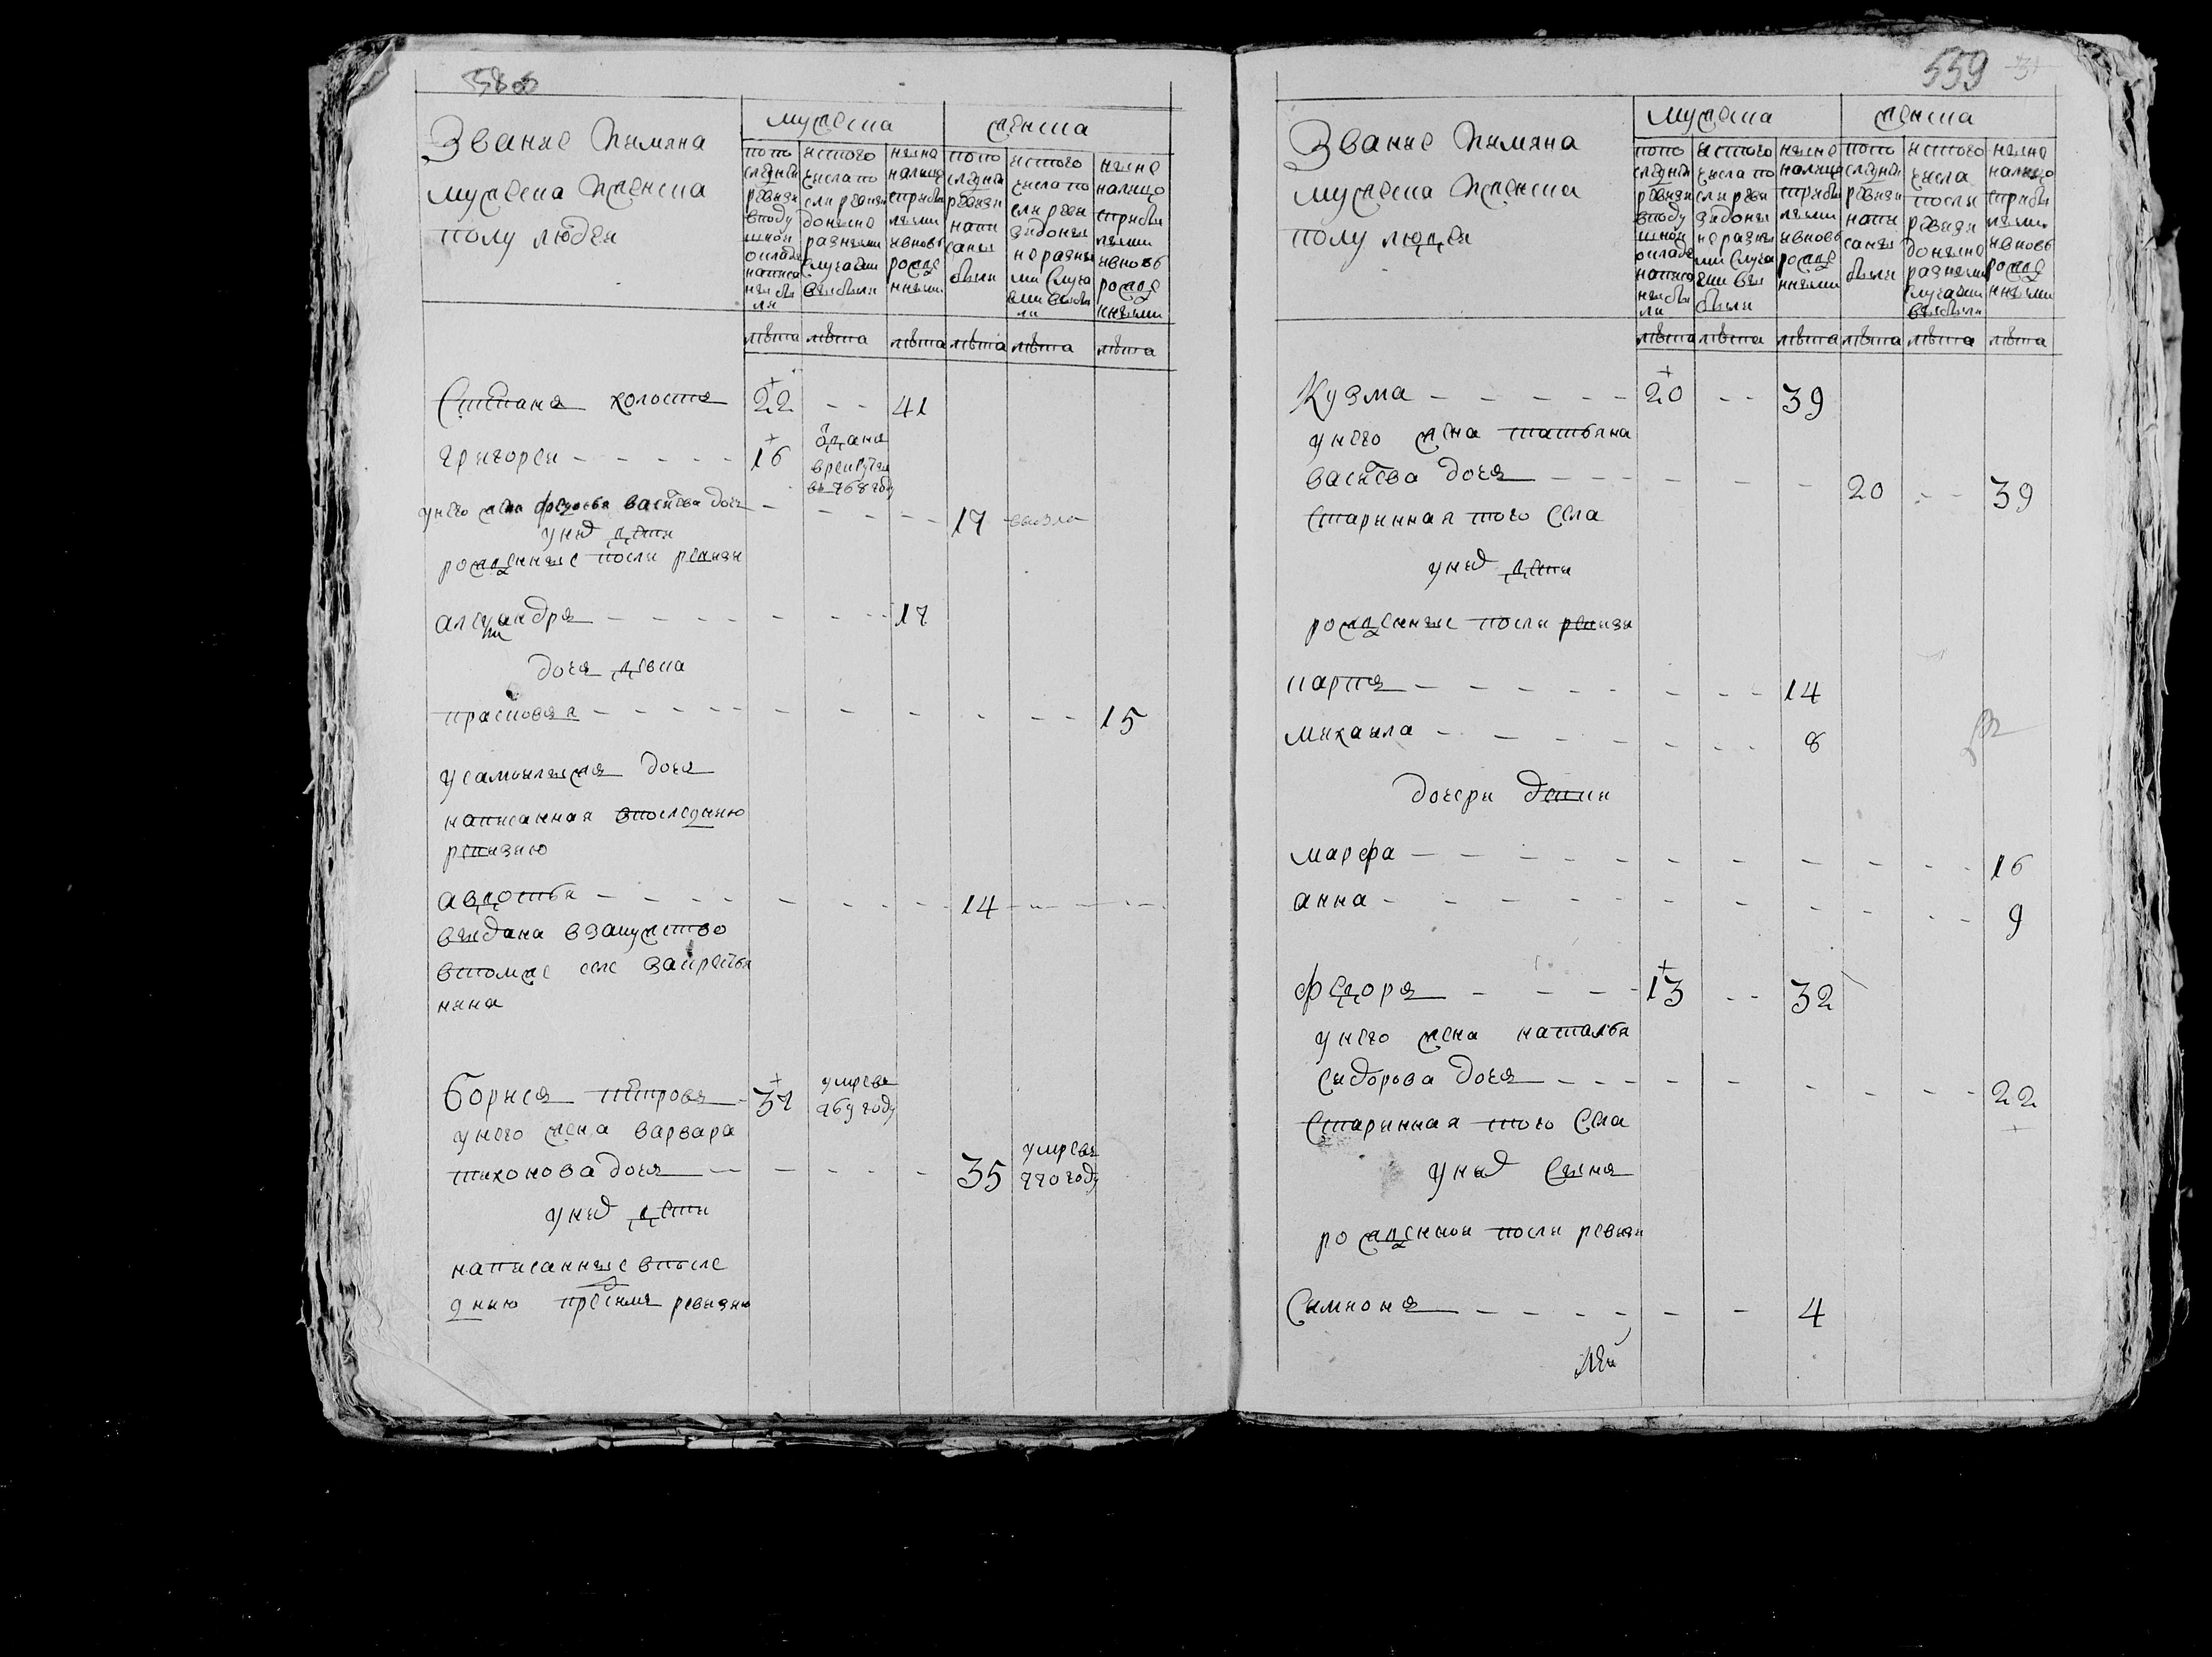 559
Звание и имяна
мужеска и женска
полу людеи
мужеска
женска
по по
следнеи
ревизи
в поду
шнои
окладъ
написа
ны бы
ли
ис того
числа по
сли ревизи
до ныне
разными
случаями
выбыли
ныне
налицо
с прибы
лыми
и вновь
рожде
нными
по по
следнеи
ревизи
напи
саны
были
ис того
числа по
сли реви
зи до ны
не разны
ми случа
ями выбы
ли
ныне
налицо
с прибы
лыми
и вновь
рожде
нными
лѣта лѣта лѣта лѣта лѣта лѣта
Степанъ холостъ 22 - - 41
Григореи - - - - - 16
отданъ
в рекруты
въ 768 году
у него жена Федосья Васильева дочь - - - - - 17
у них дети
рожденные после ревизи
Александръ - - - - - - - 17
дочь девка
Прасковья - - - - - - - - - - - 15
у Самоилы жъ дочь
написанная в последнюю
ревизию
Авдотья - - - - - - - - 14 - - - -
выдана в замужство
в том же селе за крестья
нина
Борисъ Петровъ - 37
умре въ
769 году
у него жена Варвара
Тихонова дочь - - - - - - 35
умре въ
770 году
у них дети
написанные в после
днюю пред сим ревизию
559
Звание и имяна
мужеска и женска
полу людеи
мужеска
женска
по по
следнеи
ревизи
в поду
шнои
окладъ
написа
ны бы
ли
ис того
числа по
сли реви
зи до ны
не разны
ми случа
ями вы
были
ныне
налицо
с прибы
лыми
и вновь
рожде
нными
по по
следнеи
ревизи
напи
саны
были
ис того
числа
посли
ревизи
до ныне
разными
случаями
выбыли
ныне
налицо
с прибы
лыми
и вновь
рожде
нными
лѣта лѣта лѣта лѣта лѣта лѣта
Кузма - - - - - 20 - - 39
у него жена Татьяна
Васильева дочь - - - - - - 20 - - 39
старинная того села
у них дети
рожденные после ревизи
Карпъ - - - - - - - - 14
Михаила - - - - - - - - 8
дочери девки
Марфа - - - - - - - - - - - 16
Анна - - - - - - - - - - - 9
Федоръ - - - - 13 - - 32
у него жена Наталья
Сидорова дочь - - - - - - - - - 22
старинная того села
у них сынъ
рожденнои после ревизи
Симионъ - - - - - - 4